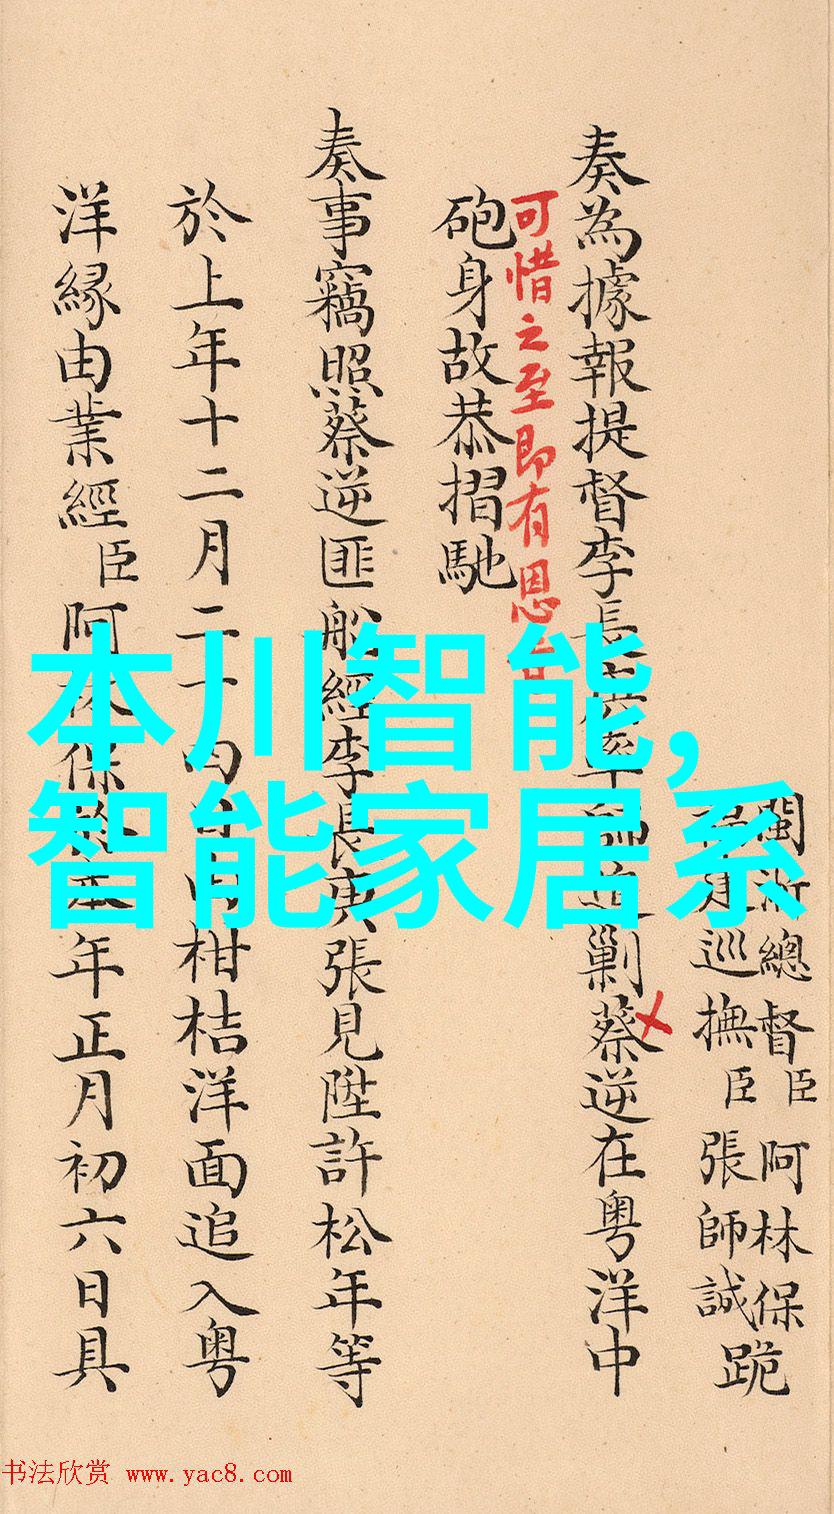 閩浙總督臣阿林保
福建巡撫臣張師誠跪
奏為據報提督李長庚率師追剿蔡逆在粤洋中
可惜之至即有恩旨
砲身故恭摺馳
奏事竊照蔡逆匪船經李長庚張見陞許松年等
於上年十二月二十四日由柑桔洋面追入粤
洋緣由業經臣阿林保於本年正月初六日具
本川智能,
智能家居系
书法欣赏 www.yac8.com